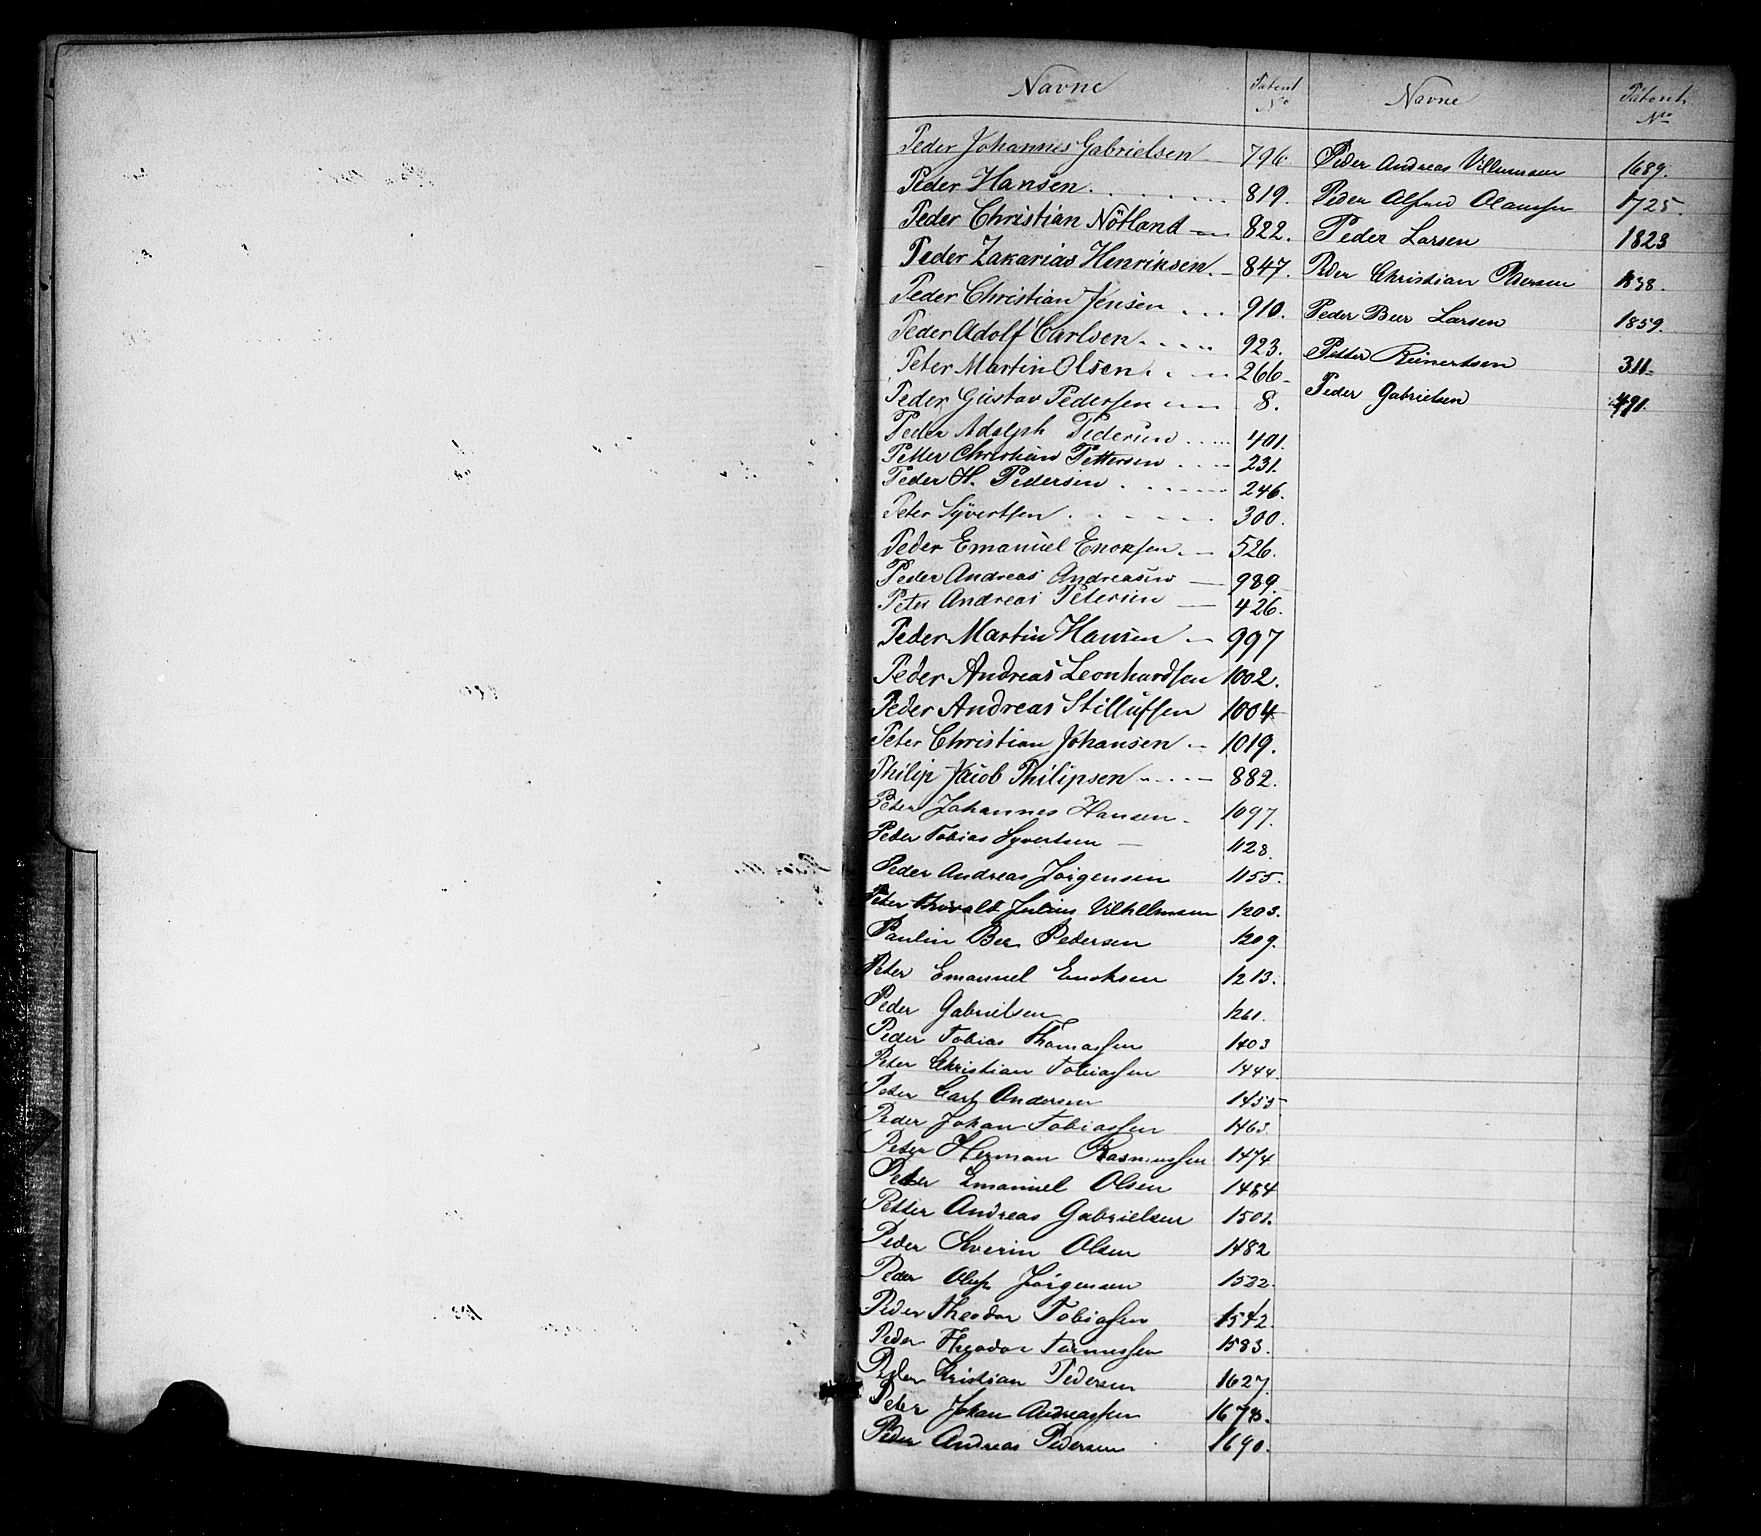 Navne Patent No
Peder Johannes Gabrielsen 796.
Peder Hansen 819.
Peder Christian Nötland 822.
Peder Zakarias Henriksen 847.
Peder Christian Jensen 910.
Peder Adolf Carlsen 923.
Peter Martin Olsen 266
Peder Gustav Pedersen 8.
Peder Adolph Pedersen 401.
Petter Christian Pettersen 231.
Peder H. Pedersen 246.
Peter Syvertsen 300.
Peder Emanuel Enoksen 526.
Peder Andreas Andreasen 989.
Peter Andreas Petersen 426.
Peder Martin Hansen 997
Peder Andreas Leonhardsen 1002.
Peder Andreas Stillufsen 1004
Peter Christian Johansen 1019.
Philip Jacob Philipsen 882.
Peter Johannes Hansen 1097.
Peder Tobias Syvertsen 1128.
Peder Andreas Jörgensen 1155.
Peter Julius 1203.
Paulin Ber Pedersen 1209.
Peter Emanuel Enoksen 1213.
Peder Gabrielsen 1261.
Peder Tobias Thomassen 1403
Peter Christian Tobiassen 1444.
Peter Carl Andersen 1455
Peder Johan Tobiassen 1463.
Peter Herman Rasmussen 1474
Peder Emanuel Olsen 1484
Petter Andreas Gabrielsen 1501.
Peder Severin Olsen 1482
Peder Oluf Jörgensen 1522.
Peder Theodor Tobiassen 1542.
Peder Theodor 1583.
Peder Cristian Pedersen 1627.
Peter Johan Andreassen 1678.
Peder Andreas Pedersen 1690.
Navne Patent No
Peder Andreas Villumsen 1689.
Peder Alfred Olaussen 1725.
Peder Larsen 1823
Peder Christian Pedersen 1838.
Peder Beer Larsen 1859.
Petter Reinertsen 311.
Peder Gabrielsen 491.